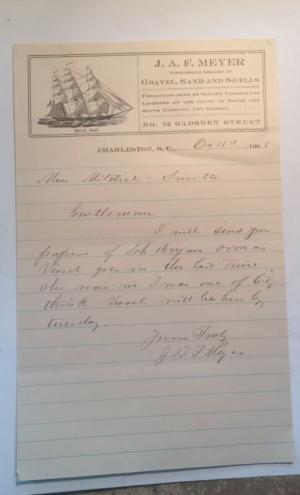 J. A. F. MEYER
WHOLESALE DEALER IN
GRAVEL, SAND AND SHELLS
FREIGHTING DONE BY SAILING VESSELS AND
LIGHTERS ON THE COAST OF NORTH AND
SOUTH CAROLINA AND GEORGIA
NO. 52 GADSDEN STREET
CHARLESTON, S. C., Oct 15th 1908
Mess Mitchel - Smith
Gentleman
I will send you
papers of Sch Bryan soon as
Vessel goes in the last time
she was in I was out of City
think Vessel will be here by
tuesday.
Yours Truly
J A F Meyer